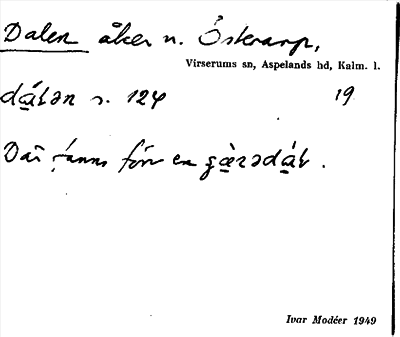 Dalen åker n. Österarp,
Virserums sn, Aspelands hd, Kalm. l.
s. 124 19
Där fanns förr en
Ivar Modéer 1949